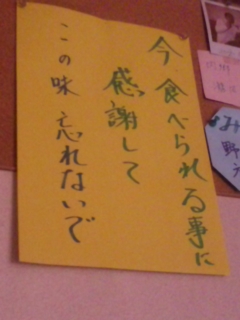 今食べられる事に
感謝して
この味忘れないで